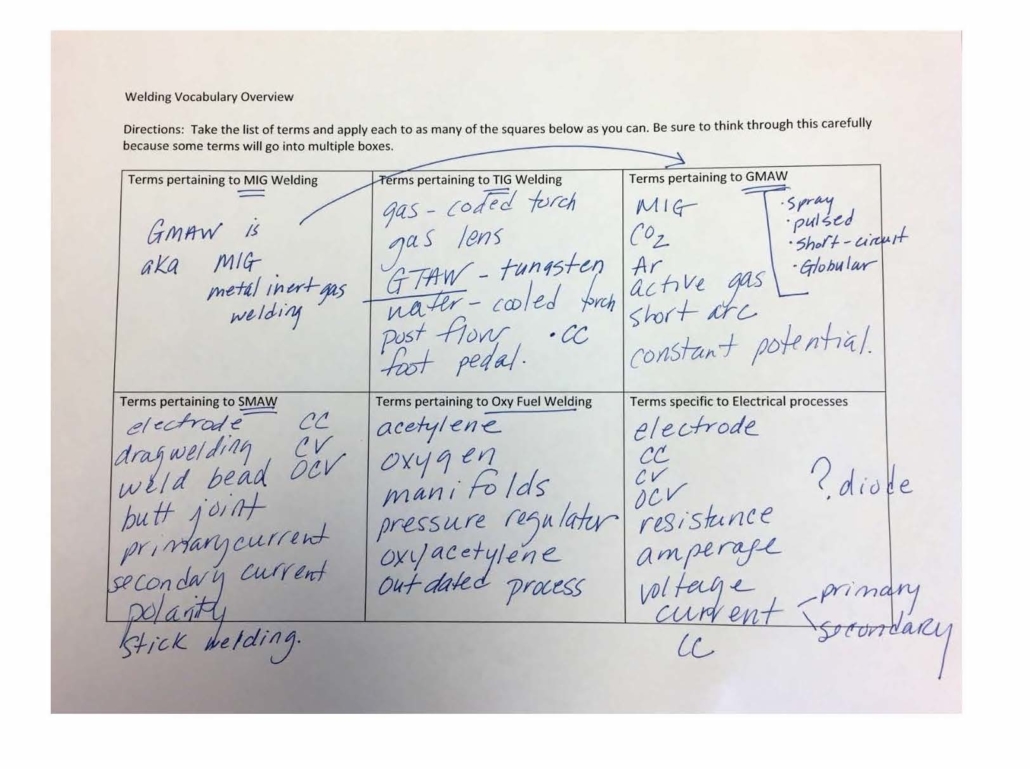 Welding Vocabulary Overview
Directions: Take the list of terms and apply each to as many of the squares below as you can. Be sure to think through this carefully
because some terms will go into multiple boxes.
Terms pertaining to MIG Welding
GMAW is
aka MIG
metal inert gas
welding
Terms pertaining to TIG Welding
gas-coded torch
gas lens
GTAW - tungsten
water-cooled torch
post flow • CC
foot pedal.
Terms pertaining to GMAW
MIG
CO2
Ar
active gas
short arc
constant potential.
• Spray
• pulsed
• Short-circuit
• Globular
Terms pertaining to SMAW
electrode CC
drag welding CV
weld bead OCV
butt joint
primary current
secondary current
polarity
stick welding.
Terms pertaining to Oxy Fuel Welding
acetylene
oxygen
manifolds
pressure regulator
oxyacetylene
outdated process
Terms specific to Electrical processes
electrode
CC
CV
OCV
? diode
resistance
amperage
voltage
current - primary
secondary
CC